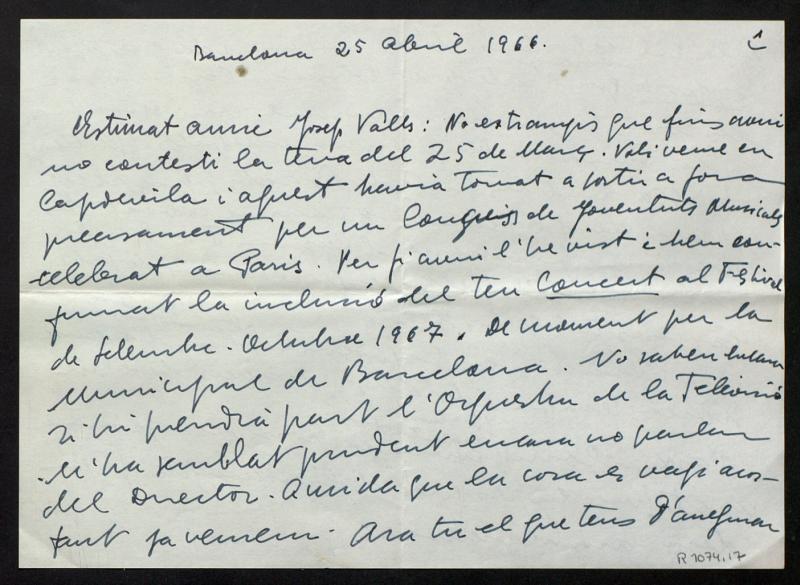 Barcelona 25 abril 1966.
1
Estimat amic Josep Valls: No estranyis que fins avui
no contesti la teva del 25 de Març. Vaig veure en
Capdevila i aquest havia tornat a sortir a fora
precisament per un Congrés de Joventuts Musicals
celebrat a Paris. Per fi avui l'he vist i hem con-
firmat la inclusió del teu Concert al Festival
de Setembre-Octubre 1967. De moment per la
Municipal de Barcelona. No sabem encara
si hi pendrà part l'Orquestra de la Televisió
M'ha semblat prudent encara no parlar
del Director. A mida que la cosa es vagi acos-
tant ja veurem. Ara tu el que tens d'anar
R 1074.17